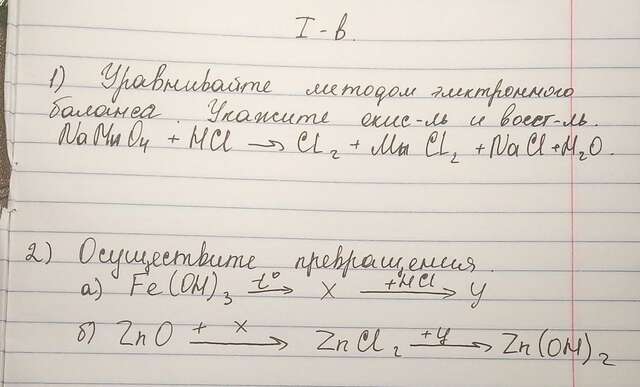 I-в.
1) Уравнивайте методом электронного
баланса. Укажите окис-ль и восст-ль.
NaMnO₄ + HCl → Cl₂ + MnCl₂ + NaCl + H₂O.
2) Осуществите превращения.
а) Fe(OH)₃ t°→ X +HCl→ Y
б) ZnO + X→ ZnCl₂ +Y→ Zn(OH)₂